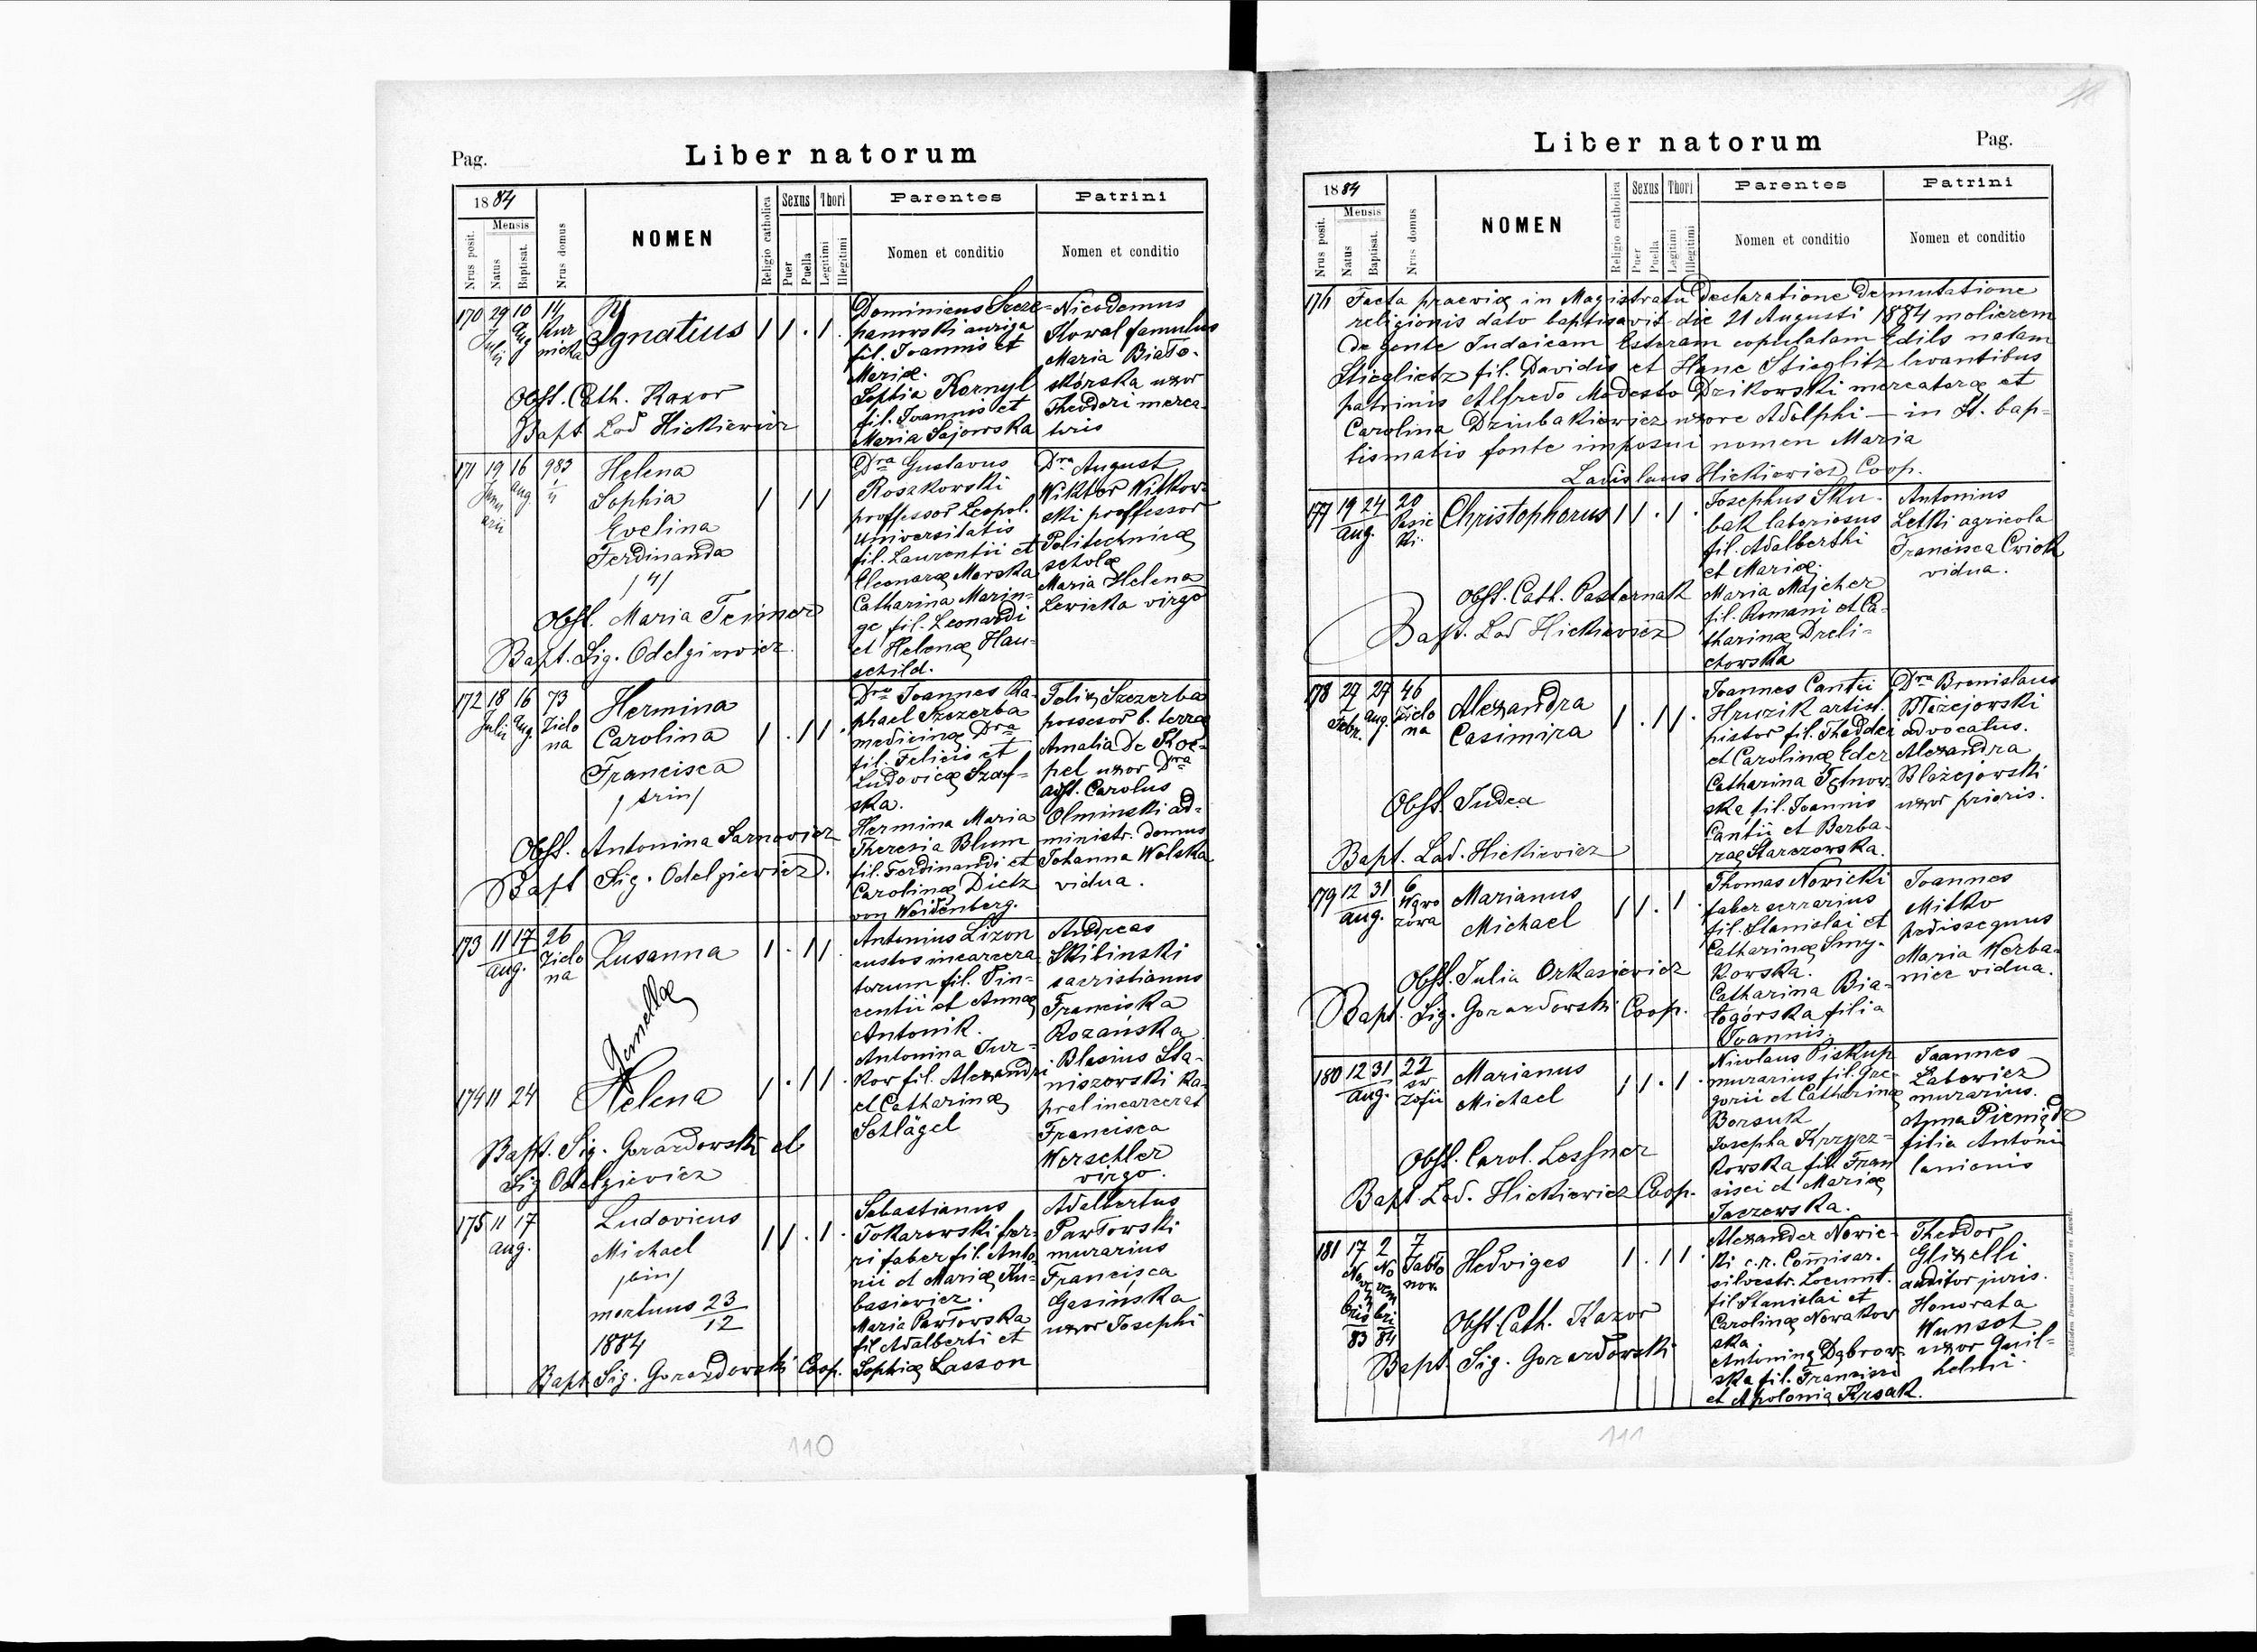 Pag.
Liber natorum
1884
Nrus posit.
Mensis
Natus
Baptisat.
Nrus domus
NOMEN
Religio catholica
Sexus
Puer
Puella
Thori
Legitimi
Illegitimi
Parentes
Nomen et conditio
Patrini
Nomen et conditio
170 29 10 14
Julii Aug Kur
nicka
Ignatius
Obst. Cath. Kazor
Bapt Lad Hickiewicz
Dominicus Szcze-
panowski auriga
fil. Joannis et
Mariæ.
Sophia Kornyl
fil. Joannis et
Maria Sajowska
Nicodemus
Kowal famulus
Maria Biało-
skórska uxor
Theodori merca-
toris
171 19 16 983
Janu Aug
arii
Helena
Sophia
Evelina
Ferdinanda
/4/
Obst. Maria Teimer
Bapt. Sig. Odelgiewicz
Dra Gustavus
Roszkowski
proffessor Leopol.
Universitatis
fil. Laurentii et
Eleonaræ Morska
Catharina Marin-
ge fil. Leonardi
et Helenæ Hau-
schild.
Dra August
Wiktor Witkow-
ski proffessor
Politechnicæ
scholæ
Maria Helena
Lewicka virgo
172 18 16 73
Julii Aug. Zielo
na
Hermina
Carolina
Francisca
/trin/
Obst. Antonina Sarnawicz
Bapt Sig. Odelgiewicz.
Dra Joannes Ra-
phael Szczerba
medicinæ Dra
fil. Felicis et
Ludovicæ Szaf-
ska.
Hermina Maria
Theresia Blum
fil. Ferdinandi et
Carolinæ Dietz
von Weidenberg.
Felix Szczerba
possesor b. terræ
Amalia de
pel uxor Dra
asst. Carolus
Olminski ad-
ministr. domus
Johanna Wolska
vidua.
173 11 17 26
Aug. Zielo
na
Zusanna
Gemellæ
Antonius Lizon
custos incarcera
torum fil. Vin-
centii et Annæ
Antonik.
Antonina Tur-
kow fil. Alexandri
et Catharinæ
Schlägel
Andreas
Skibinski
sacristianus
Franciska
Rozańska
174 11 24
Helena
Blasius Sta-
niszewski ka-
pral incarcerat
Francisca
Werschler
virgo.
Bapt. Sig. Gorazdowski et
Sig Odelgiewicz
175 11 17
Aug.
Ludovicus
Michael
/bin/
mortuus 23/12
1884
Bapt Sig. Gorazdowski Coop.
Sebastianus
Tokarowski fer-
ri faber fil. Anto-
nii et Mariæ Ku-
basiewicz.
Maria Pawłowska
fil Adalberti et
Sophiæ Lasson
Adalbertus
Pawłowski
murarius
Francisca
Gasińska
uxor Josephi
110
Liber natorum
Pag.
1884
Nrus posit.
Mensis
Natus
Baptisat.
Nrus domus
NOMEN
Religio catholica
Sexus
Puer
Puella
Thori
Legitimi
Illegitimi
Parentes
Nomen et conditio
Patrini
Nomen et conditio
Facta praeviæ in Magistratu declaratione de mutatione
religionis dato baptisavit die 21 Augusti 1884 molierem
de gente Judaicam Esteram copulatam Edils natam
Stieglietz fil. Davidis et Hane Stieglitz levantibus
patrinis Alfredo Modesto Dzikowski mercatoræ et
Carolina Dziubakiewicz uxore Adolphi - in St. bap-
tismatis fonte imposui nomen Maria
Ladislaus Hickiewicz Coop.
177 19 24 20
Aug. Kasic
ki.
Christophorus
Obst. Cath. Pasternak
Bapt. Lad Hickiewicz
Josephus Sku-
bak laboriosus
fil. Adalberthi
et Mariæ.
Maria Majcher
fil. Romani et Ca-
tharinæ Dreli-
chowska
Antonius
Letki agricola
Francisca Cwiok
vidua.
178 27 27 46
Febr. Aug. Zielo
na
Alexandra
Casimira
Obst Judea
Bapt. Lad. Hickiewicz
Joannes Cantii
Hruzik artist.
pistor fil. Theddei
et Carolinæ Eder
Catharina Tetnow-
ska fil. Joannis
Cantii et Barba-
ræ Starczowska.
Dra Bronislaus
Błażejowski
advocatus.
Alexandra
Blażejowski
uxor prioris.
179 12 31 6
Aug. Wąwo
zowa
Marianus
Michael
Obst. Julia Orkasiewicz
Bapt. Sig. Gorazdowski Coop.
Thomas Nowicki
faber serrarius
fil. Stanislai et
Catharinæ Smy-
kowska.
Catharina Bia-
łogórska filia
Joannis.
Joannes
Mitko
pedissequus
Maria Werba-
nicz vidua.
180 12 31 22
Aug. sw
Zofii
Marianus
Michael
Obst. Carol. Lessner
Bapt Lad. Hickiewicz Coop.
Nicolaus Piskup
murarius fil. Gre-
gorii et Catharinæ
Borsuk
Josepha Krzycz-
kowska fil. Fran
cisci et Mariæ
Jaczewska.
Joannes
Labowicz
murarius.
Anna Pieniądz
filia Antoni
lanionis
181 17 2 7
Novem No
bris vem
bri
83 84
Jabło
now.
Hedviges
Obst. Cath. Kazor
Bapt. Sig. Gorazdowski
Alexander Nowic-
ki c.r. Comisar.
silvestr. Locumt.
fil Stanislai et
Carolinæ Nowakow
ska
Antonina Dąbrow-
ska fil. Francisci
et Apolonia Krsak.
Theodor
Glixelli
auditor juris.
Honorata
Wunsch
uxor Guil-
helmi.
111